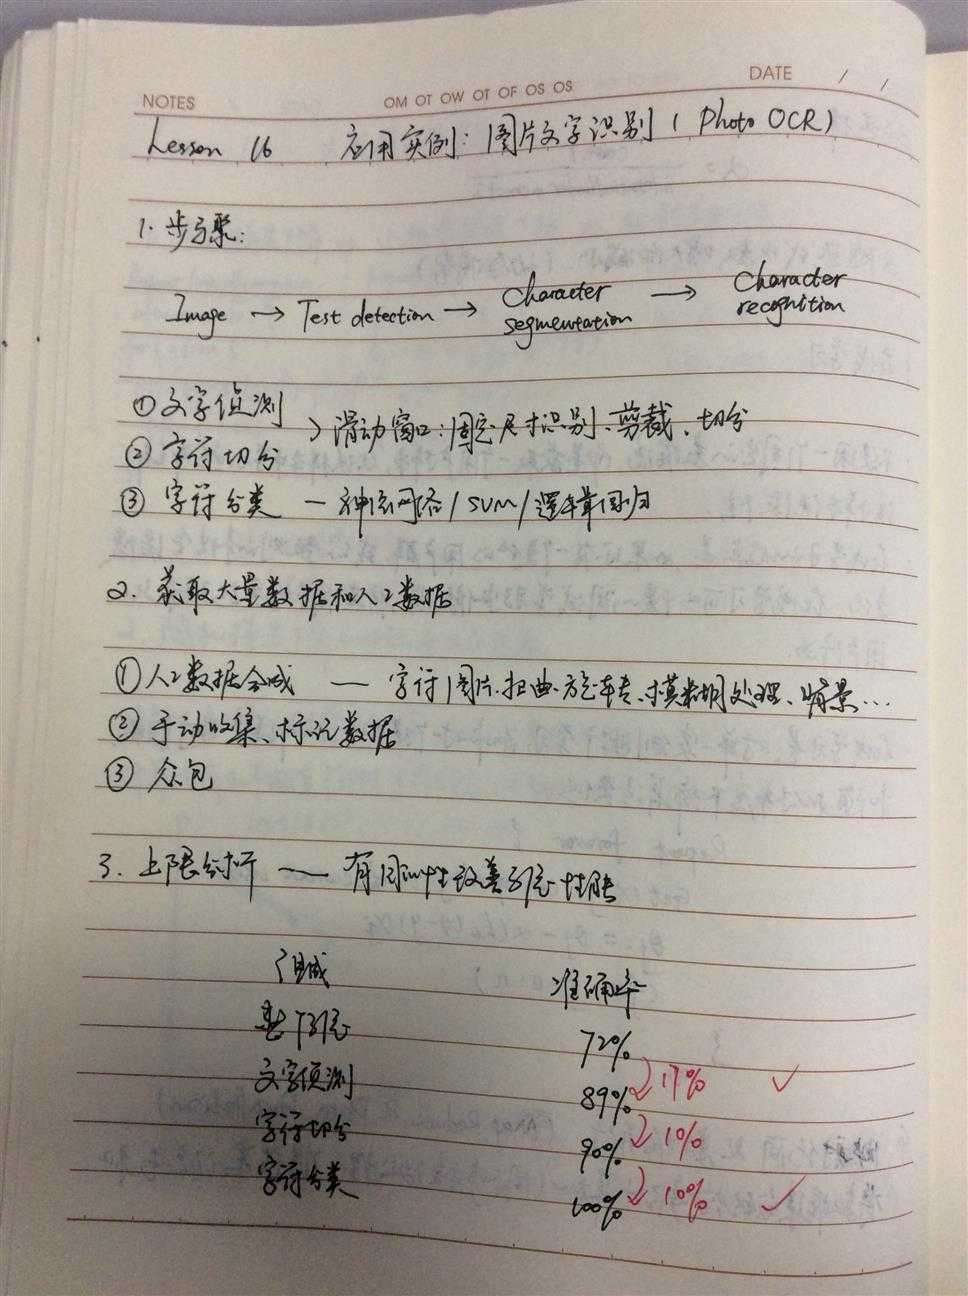 NOTES
OM OT OW OT OF OS OS
DATE / /
Lesson 16 应用实例：图片文字识别（Photo OCR）
1. 步骤：
Image → Test detection → Character segmentation → Character recognition
① 文字侦测
② 字符切分
> 滑动窗口：固定尺寸识别、剪裁、切分
③ 字符分类 — 神经网络/SVM/逻辑回归
2. 获取大量数据和人工数据
① 人工数据合成 — 字符图片.扭曲.旋转、模糊处理、背景...
② 手动收集、标记数据
③ 众包
3. 上限分析 — 有针对性改善系统性能
组成 准确率
整个系统 72%
文字侦测 89% 17% ✓
字符切分 90% 1%
字符分类 100% 10% ✓